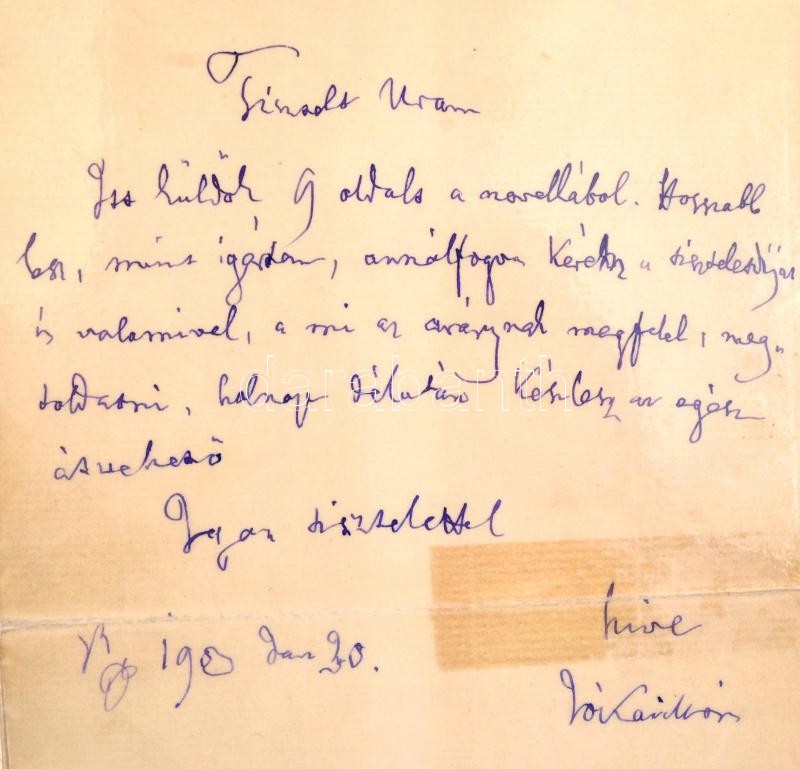 Tisztelt Uram
Itt küldök 9 oldalt a novellából. Hosszabb
lesz, mint igértem, annálfogva kéretik a tiszteletdíjat
is valamivel, a mi az aránynak megfelel, meg-
toldatni, holnap délután kész lesz az egész.
átvehető
Igaz tisztelettel
hive
Bp 1903 Jan 20.
Jókai Mór
darabanth